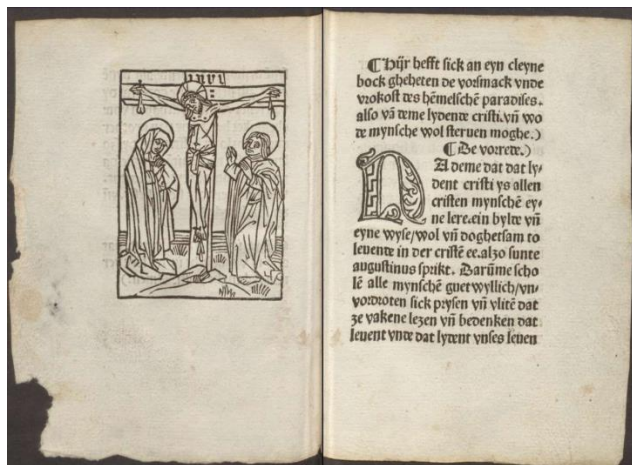 INRI
¶ Hijr hefft sick an eyn cleyne
bock gheheten de vorsmack vnde
vrokost des hēmelschē paradises.
also vā deme lydende cristi. vñ wo
de mynsche wol steruen moghe.)
¶ De vorrede.)
NA deme dat dat ly⸗
dent cristi ys allen
cristen mynschē ey⸗
ne lere. ein bylde vñ
eyne wyse/wol vñ doghetsam to
leuende in der cristē ee. alzo sunte
augustinus sprikt. Darūme scho
lē alle mynschē guetwyllich/vn⸗
vordroten sick prysen vñ vlitē dat
ze vakene lezen vñ bedenken dat
leuent vnde dat lydent vnses leuen